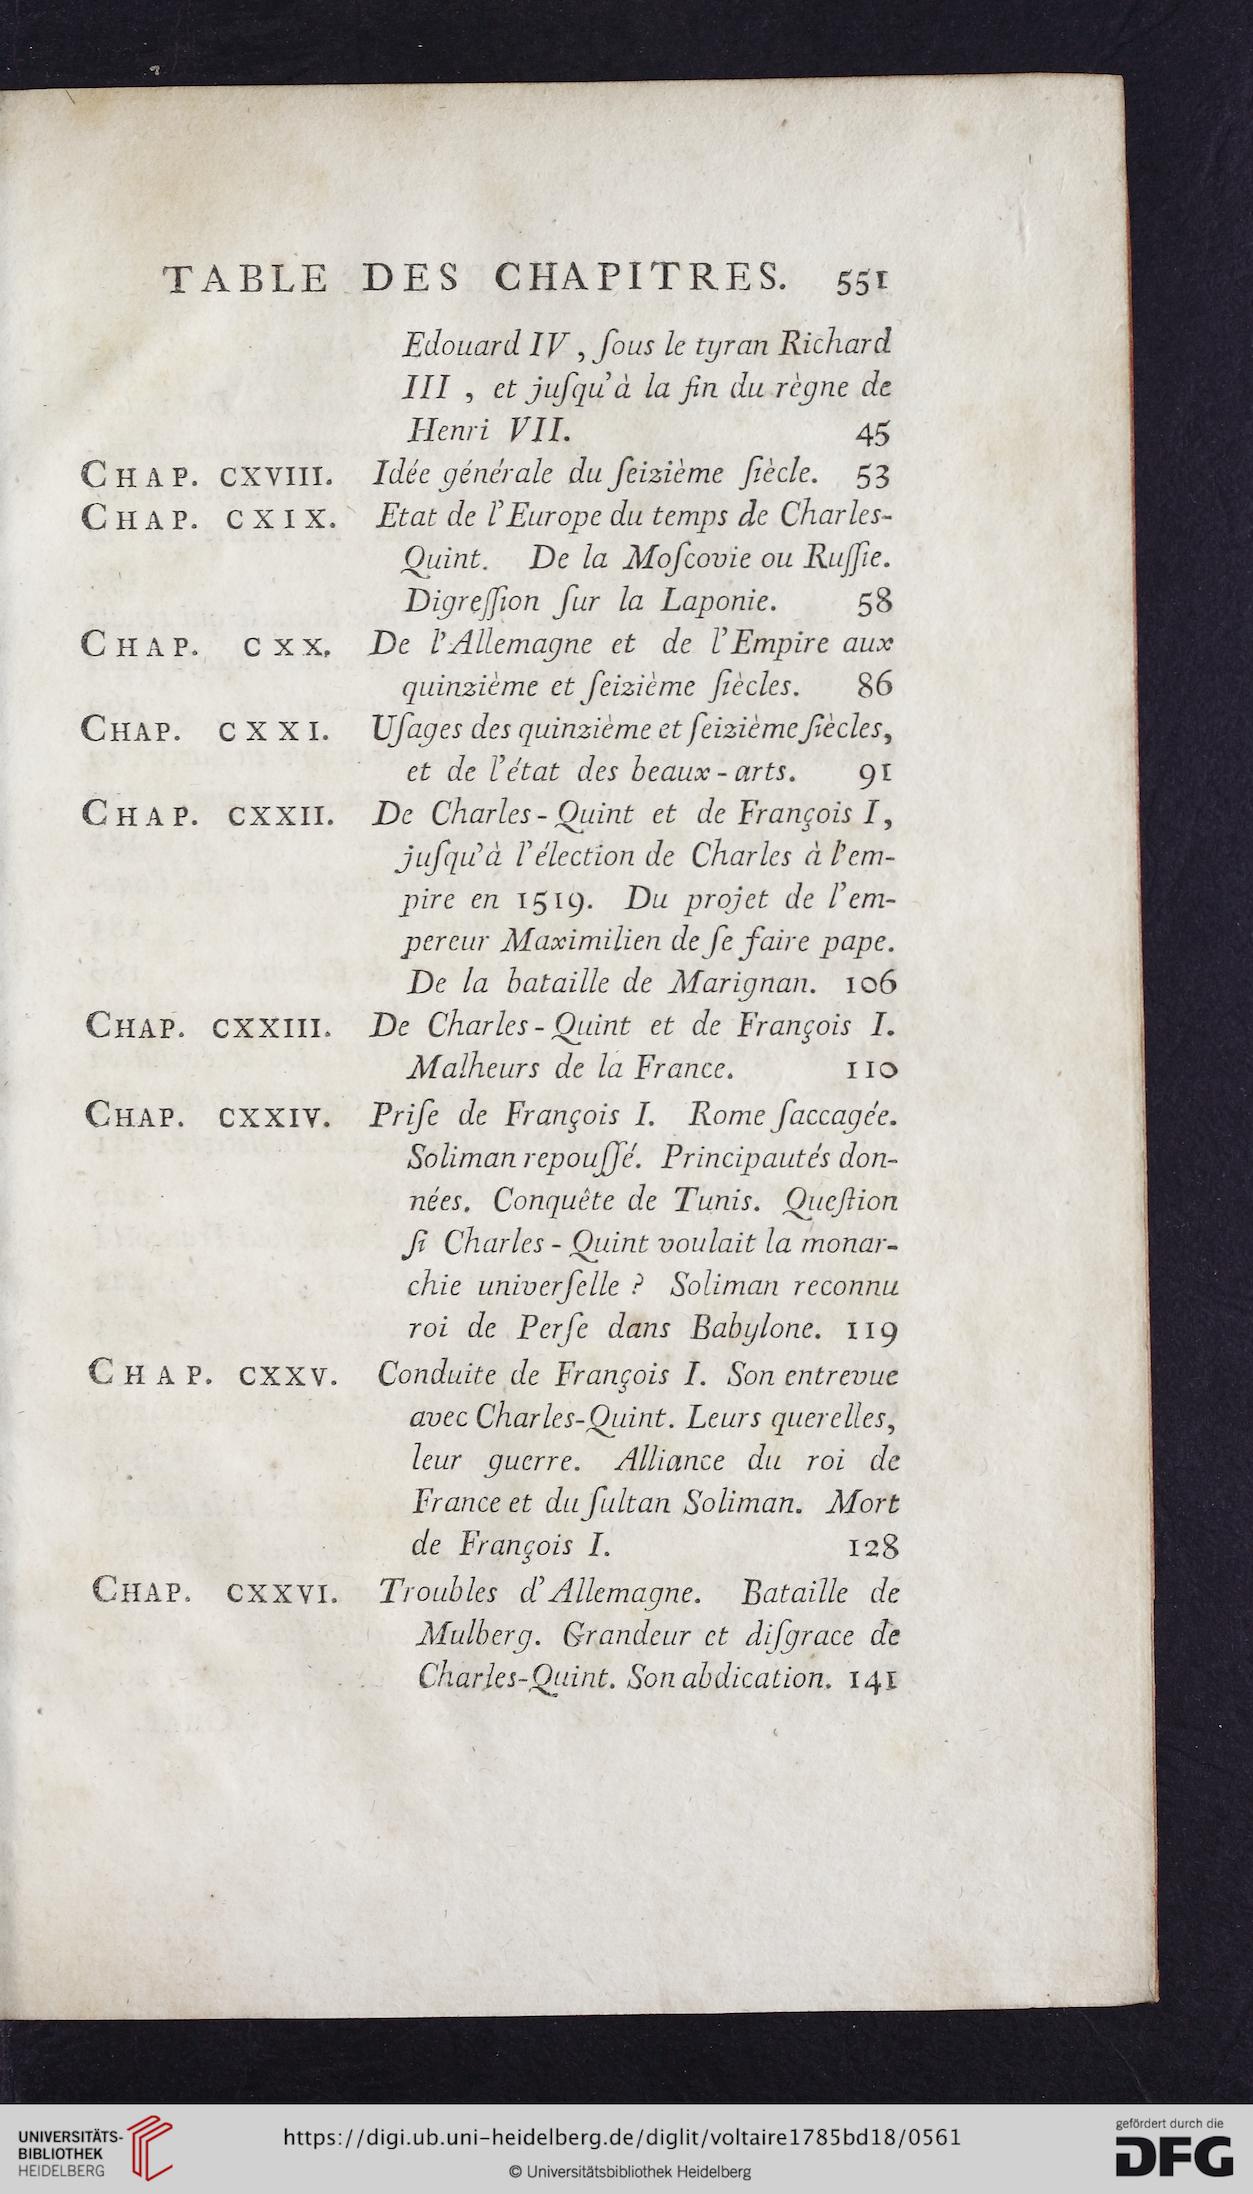 TABLE DES CHAPITRES. 551
Edouard IV , ſous le tyran Richard
III , et juſqu'à la fin du règne de
Henri VII. 45
CHAP. CXVIII. Idée générale du ſeizième ſiècle. 53
CHAP. CXIX. Etat de l'Europe du temps de Charles-
Quint. De la Moſcovie ou Ruſſie.
Digreſſion ſur la Laponie. 58
CHAP. CXX. De l'Allemagne et de l'Empire aux
quinzième et ſeizième ſiècles. 86
CHAP. CXXI. Uſages des quinzième et ſeizième ſiècles,
et de l'état des beaux-arts. 91
CHAP. CXXII. De Charles-Quint et de François I,
juſqu'à l'élection de Charles à l'em-
pire en 1519. Du projet de l'em-
pereur Maximilien de ſe faire pape.
De la bataille de Marignan. 106
CHAP. CXXIII. De Charles-Quint et de François I.
Malheurs de la France. 110
CHAP. CXXIV. Priſe de François I. Rome ſaccagée.
Soliman repouſſé. Principautés don-
nées. Conquête de Tunis. Queſtion
ſi Charles-Quint voulait la monar-
chie univerſelle ? Soliman reconnu
roi de Perſe dans Babylone. 119
CHAP. CXXV. Conduite de François I. Son entrevue
avec Charles-Quint. Leurs querelles,
leur guerre. Alliance du roi de
France et du ſultan Soliman. Mort
de François I. 128
CHAP. CXXVI. Troubles d'Allemagne. Bataille de
Mulberg. Grandeur et diſgrace de
Charles-Quint. Son abdication. 141
UNIVERSITÄTS-
BIBLIOTHEK
HEIDELBERG
https://digi.ub.uni-heidelberg.de/diglit/voltaire1785bd18/0561
© Universitätsbibliothek Heidelberg
gefördert durch die
DFG